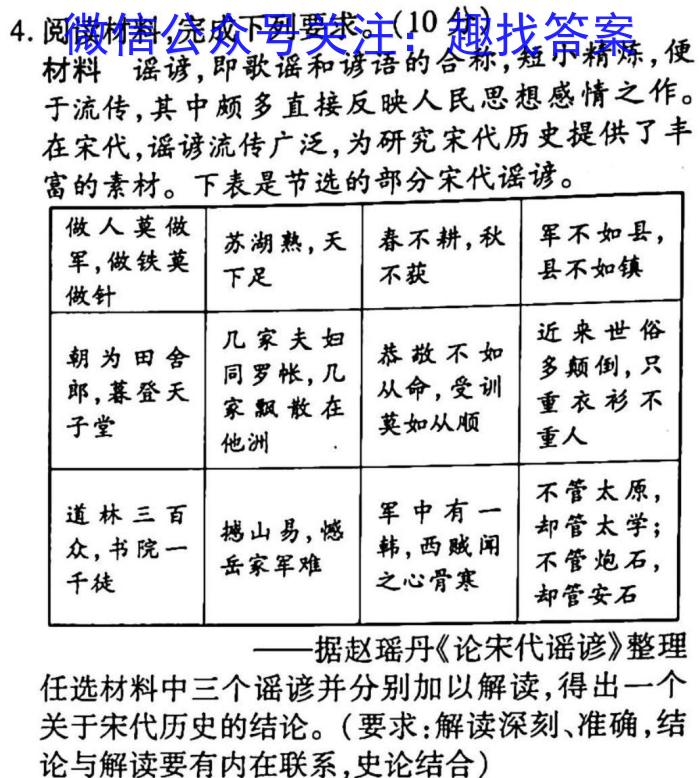 4. 阅读材料,完成下列要求。(10 分)
微信公众号关注:趣找答案
材料 谣谚,即歌谣和谚语的合称,短小精炼,便
于流传,其中颇多直接反映人民思想感情之作。
在宋代,谣谚流传广泛,为研究宋代历史提供了丰
富的素材。下表是节选的部分宋代谣谚。
做人莫做
军,做铁莫
做针
苏湖熟,天
下足
春不耕,秋
不获
军不如县,
县不如镇
朝为田舍
郎,暮登天
子堂
几家夫妇
同罗帐,几
家飘散在
他洲
恭敬不如
从命,受训
莫如从顺
近来世俗
多颠倒,只
重衣衫不
重人
道林三百
众,书院一
千徒
撼山易,憾
岳家军难
军中有一
韩,西贼闻
之心骨寒
不管太原,
却管太学;
不管炮石,
却管安石
——据赵瑶丹《论宋代谣谚》整理
任选材料中三个谣谚并分别加以解读,得出一个
关于宋代历史的结论。(要求:解读深刻、准确,结
论与解读要有内在联系,史论结合)